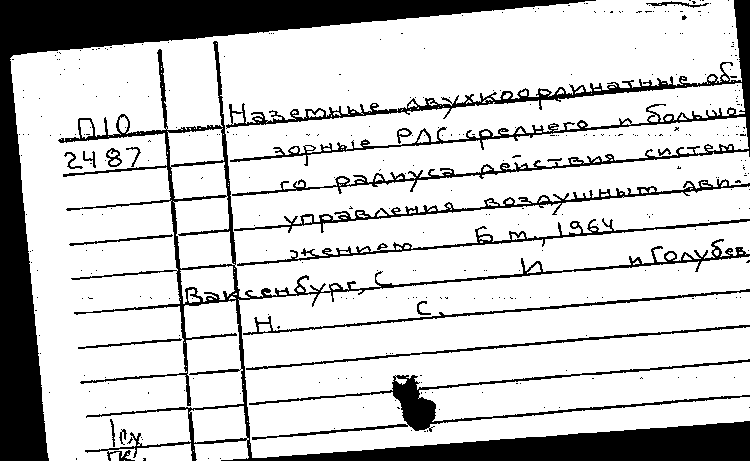 П10
2487
Наземные двухкоординатные об-
зорные РЛС среднего и большо-
го радиуса действия систем
управления воздушным дви-
жением Б м., 1964
Ваксенбург, С И и Голубев,
Н. С.